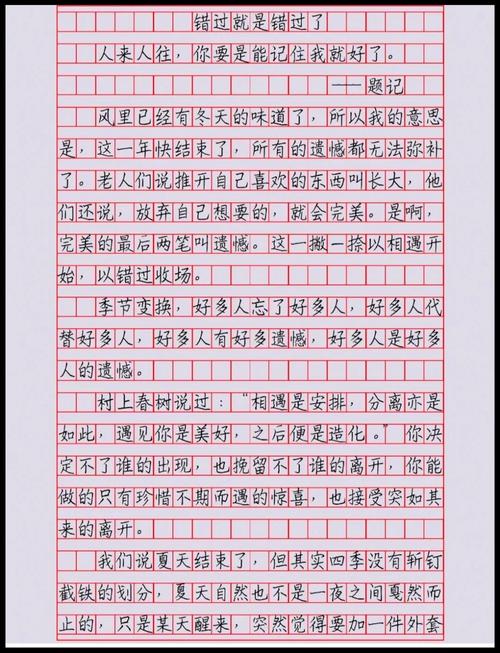 错过就是错过了
人来人往，你要是能记住我就好了。
——题记
风里已经有冬天的味道了，所以我的意思
是，这一年快结束了，所有的遗憾都无法弥补
了。老人们说推开自己喜欢的东西叫长大，他
们还说，放弃自己想要的，就会完美。是啊，
完美的最后两笔叫遗憾。这一撇一捺以相遇开
始，以错过收场。
季节变换，好多人忘了好多人，好多人代
替好多人，好多人有好多遗憾，好多人是好多
人的遗憾。
村上春树说过：“相遇是安排，分离亦是
如此，遇见你是美好，之后便是造化。”你决
定不了谁的出现，也挽留不了谁的离开，你能
做的只有珍惜不期而遇的惊喜，也接受突如其
来的离开。
我们说夏天结束了，但其实四季没有斩钉
截铁的划分，夏天自然也不是一夜之间戛然而
止的，只是某天醒来，突然觉得要加一件外套